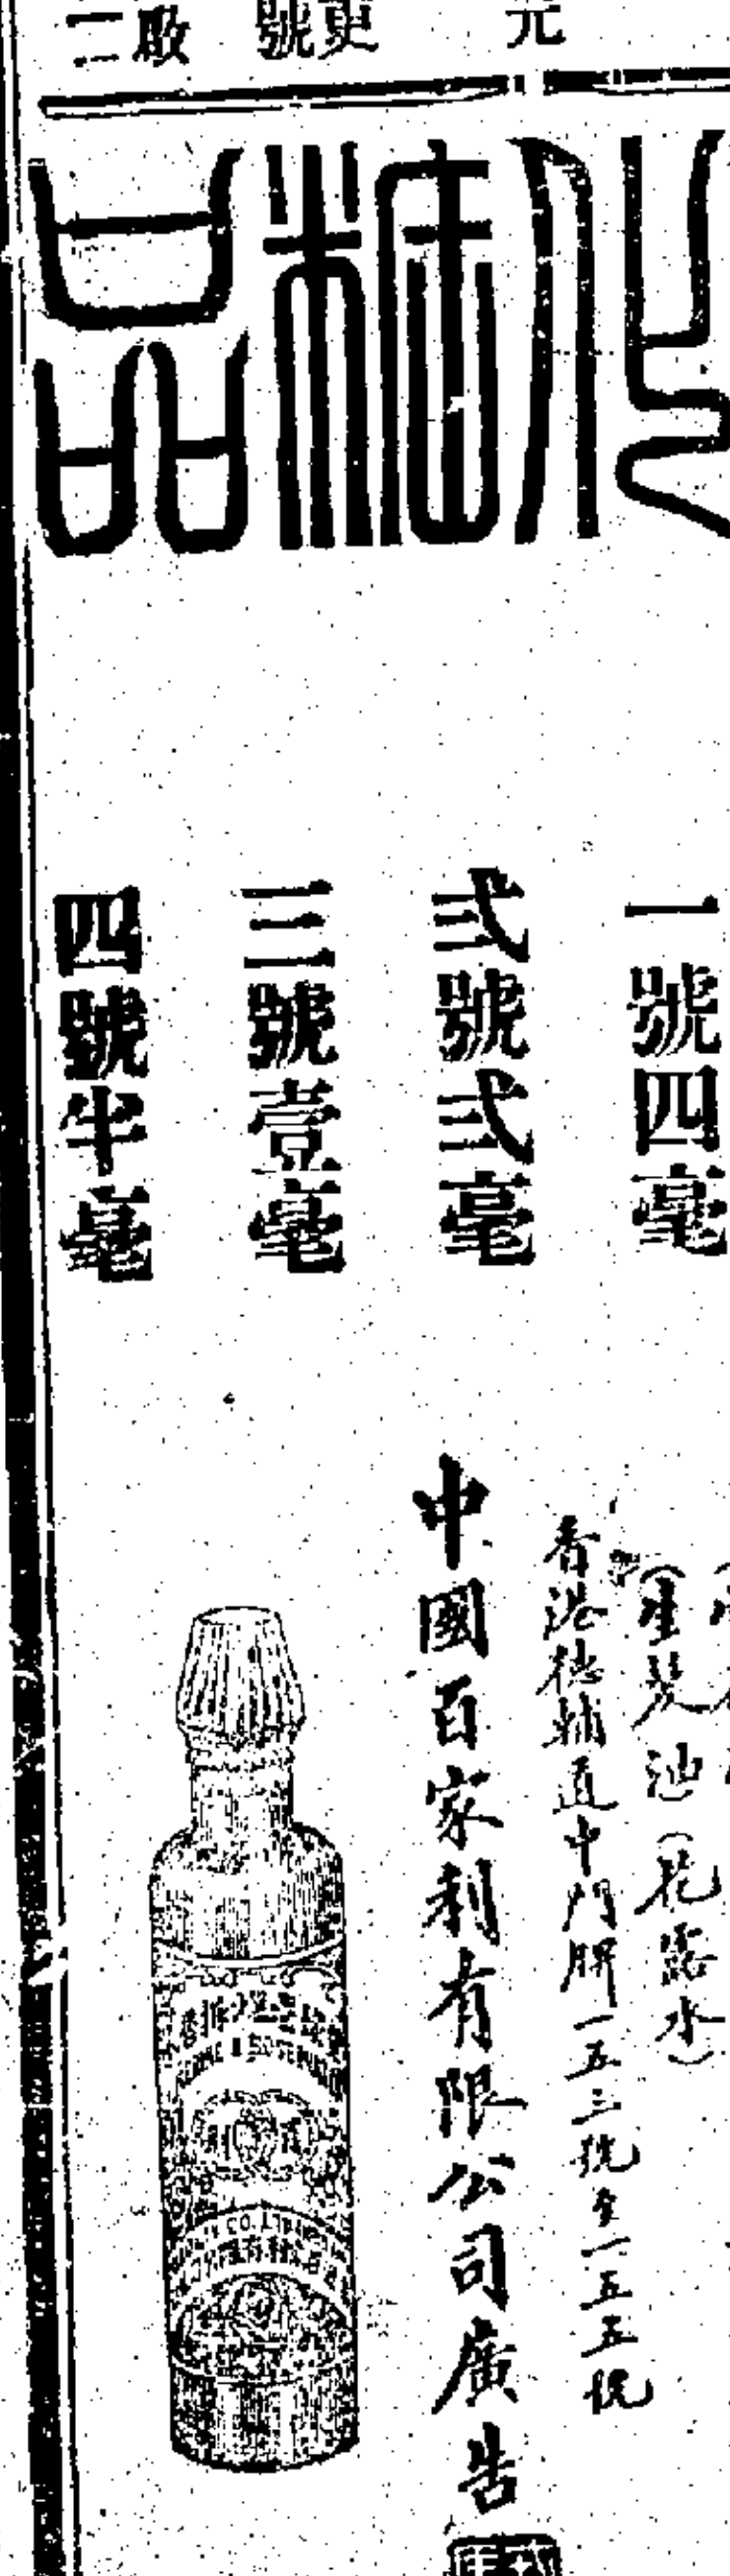 元
號更
敢
二
化粧品
一號四毫
弍號弍毫
三號壹毫
四號半毫
(生髮油)(花露水)
香港德輔道中門牌一五三號至一五五號
中國百家利有限公司廣告
CO. LTD